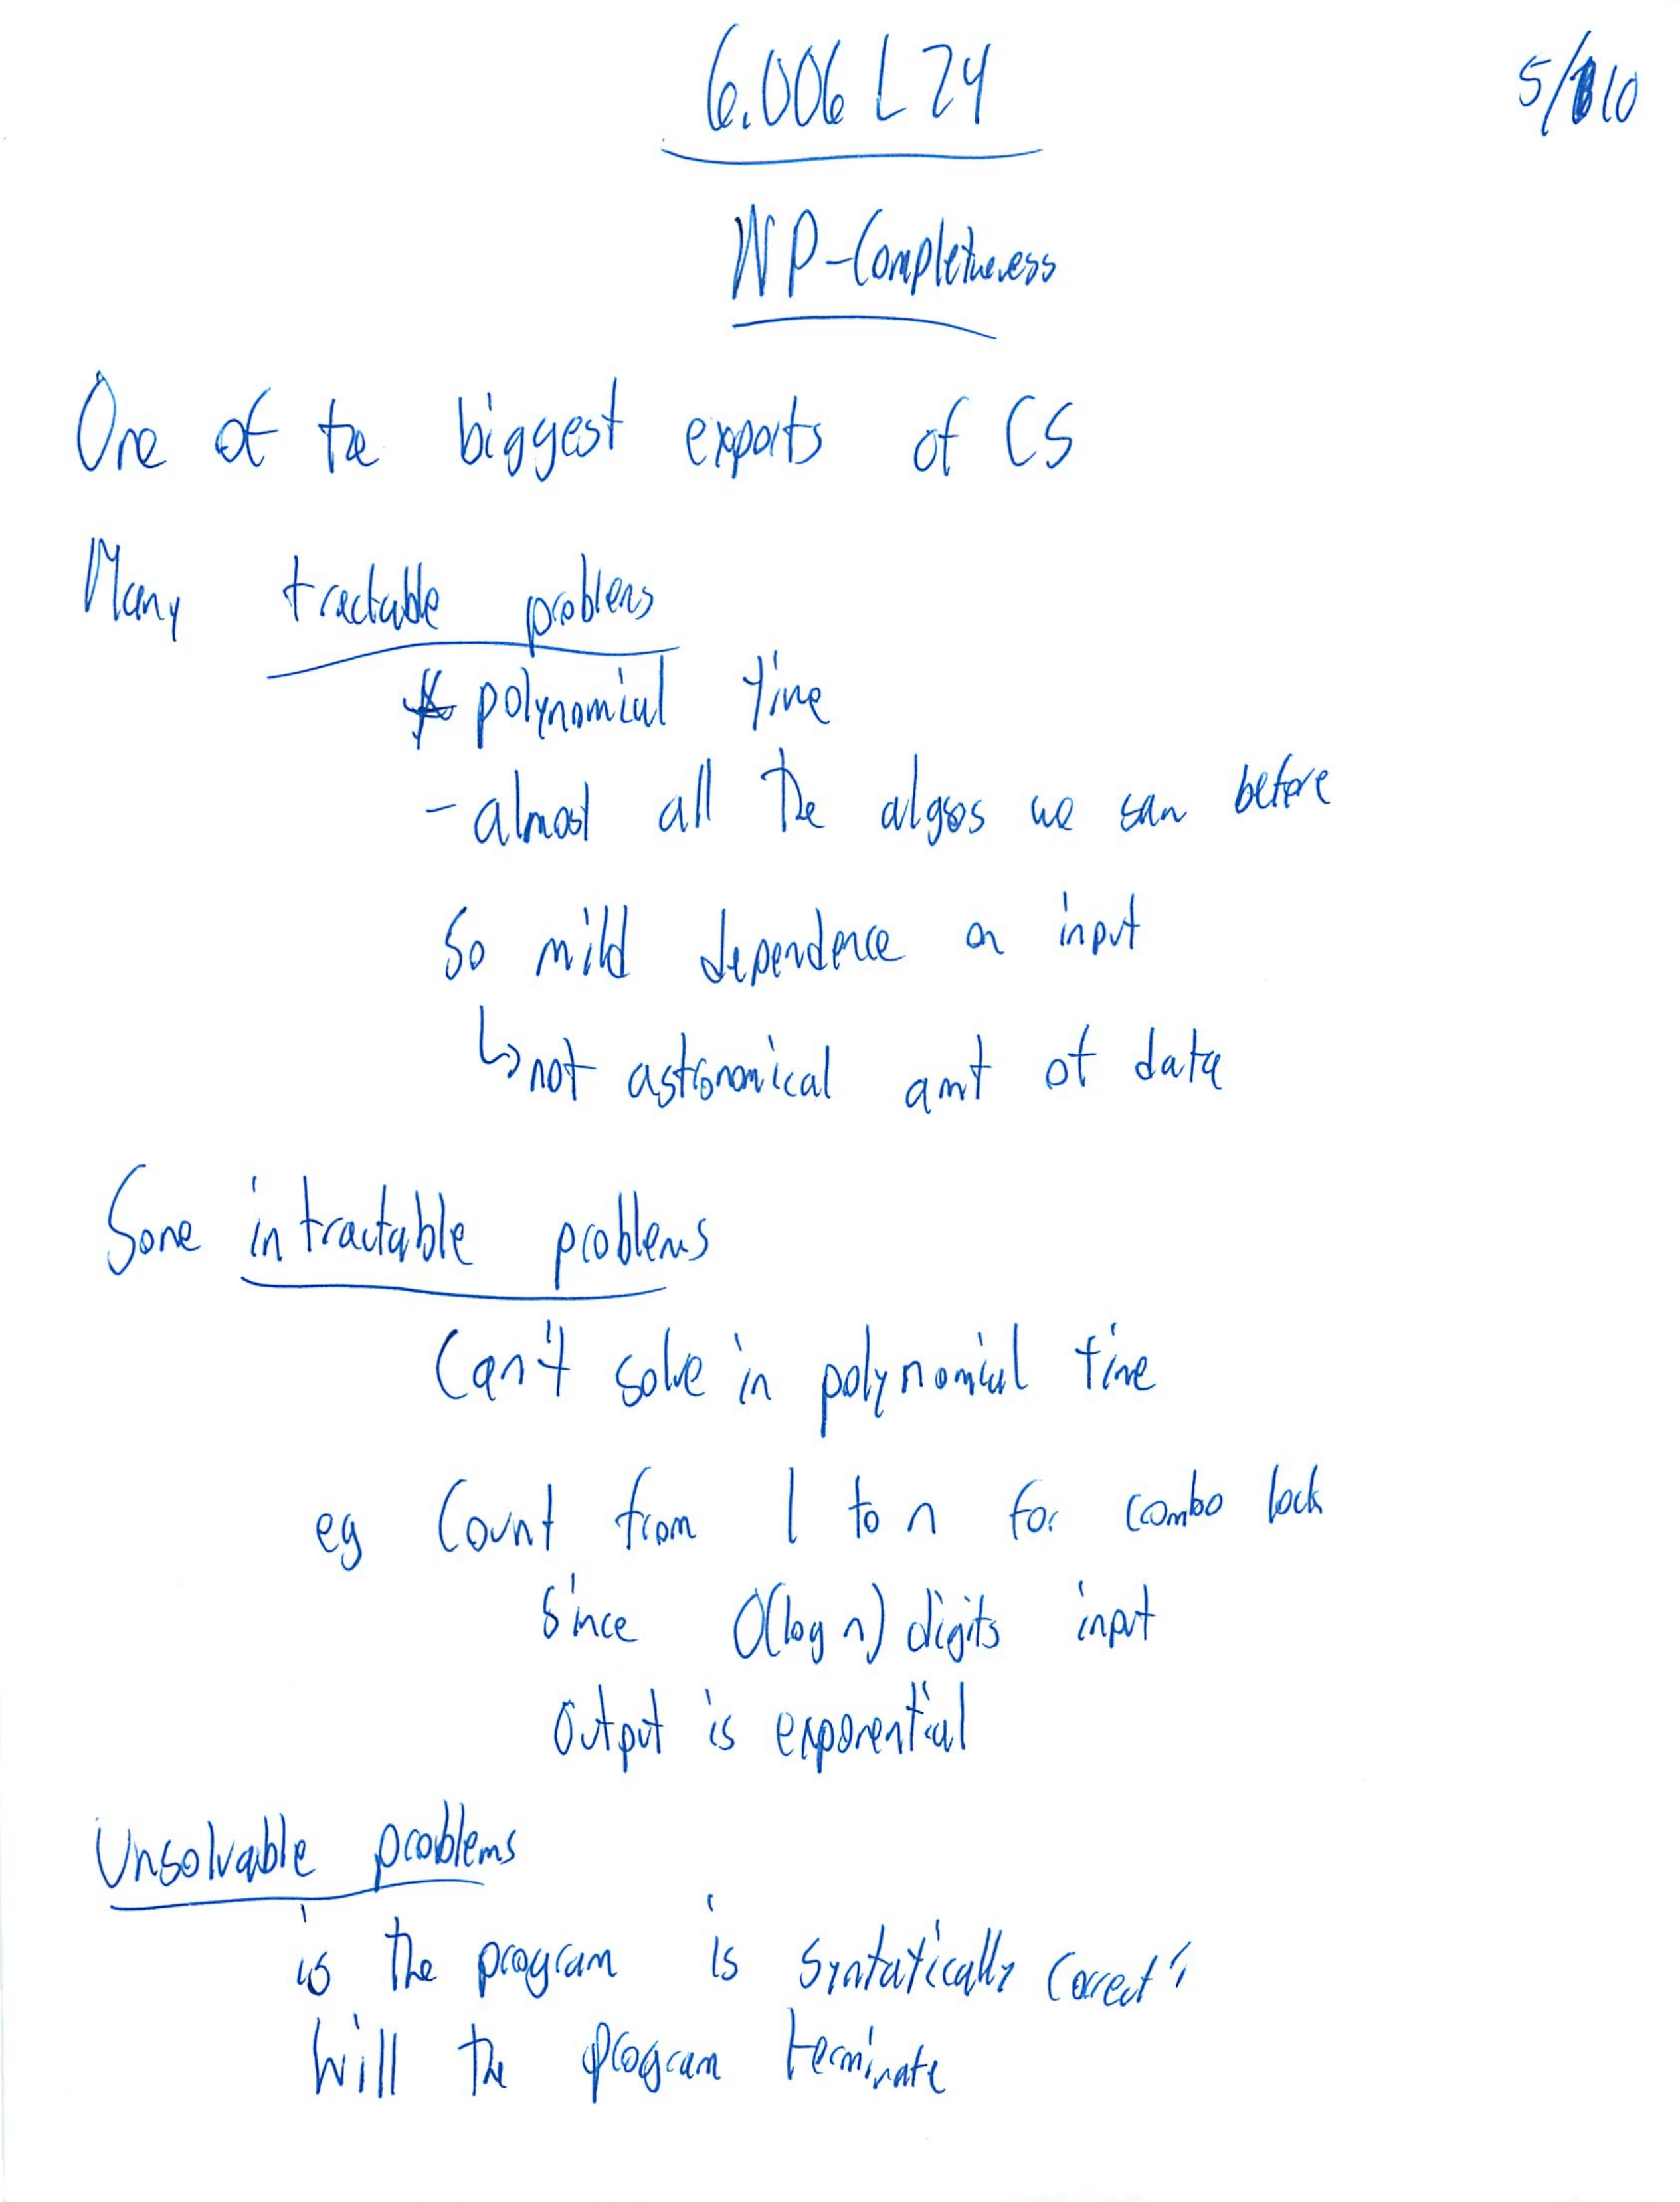 6.006 L24
5/10
NP-Completeness
One of the biggest exports of CS
Many tractable problems
polynomial time
- almost all the algos we saw before
So mild dependence on input
↳ not astronomical amt of data
Some intractable problems
Can't solve in polynomial time
eg Count from 1 to n for combo lock
Since O(log n) digits input
Output is exponential
Unsolvable problems
is the program is syntatically correct?
Will the program terminate